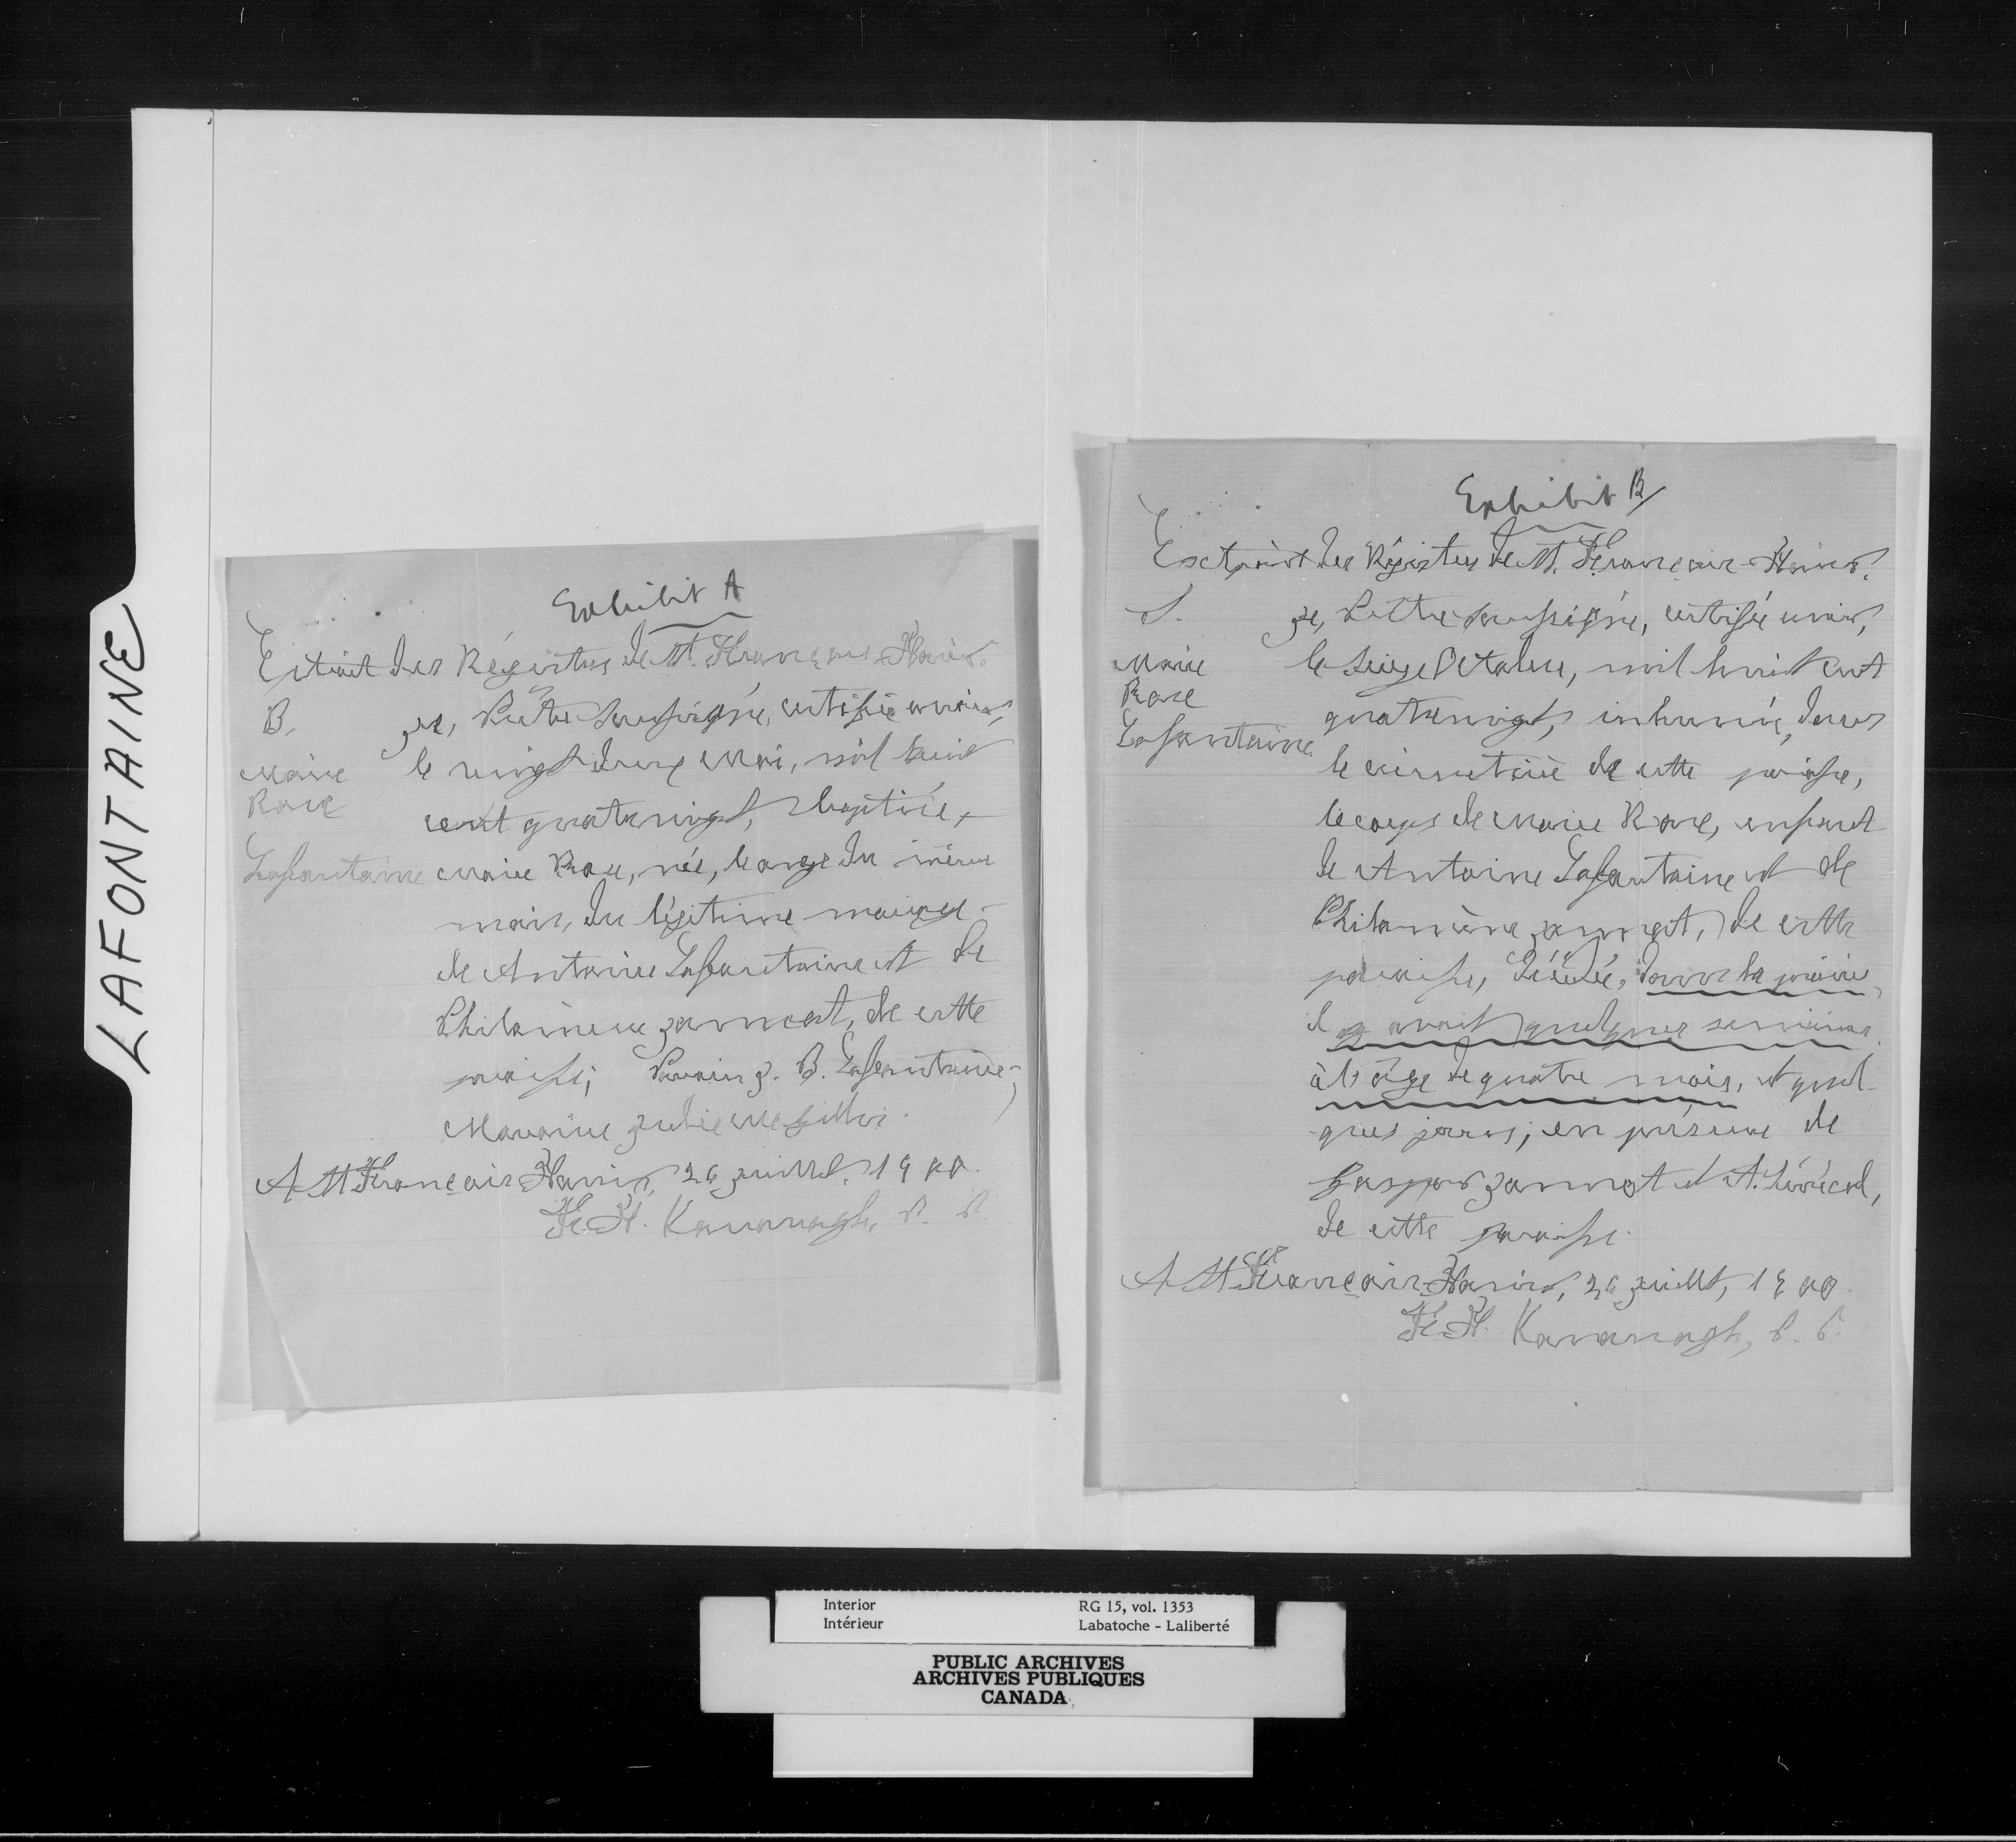 LAFONTAINE
Exhibit A
Extrait des Régistres de St. François-Xavier.
B.
Marie
Rose
Lafontaine
Je, Prêtre soussigné, certifie avoir,
le vingt deux Mai, mil huit
cent quatrevingt, baptisé,
Marie Rose, née, le onze du même
mois, du légitime mariage
de Antoine Lafontaine et de
Philomène Jannot, de cette
paroisse; Parrain J. B. Lafontaine;
Marraine Julie
A St. François-Xavier, 26 juillet, 1900.
F. X. Kavanagh, P. P.
Exhibit B
Extrait des Régistres de St. François-Xavier.
S.
Marie
Rose
Lafontaine
Je, Prêtre soussigné, certifie avoir,
le seize Octobre, mil huit cent
quatrevingt, inhumé, dans
le cimetière de cette paroisse,
le corps de Marie Rose, enfant
de Antoine Lafontaine et de
Philomène Jannot, de cette
paroisse, décédée, dans la prairie,
il y avait quelques semaines
à l'âge de quatre mois, et quel-
ques jours; en présence de
Gaspar Jannot et A.
de cette paroisse.
A St. François-Xavier, 26 juillet, 1900.
F. X. Kavanagh, P. P.
Interior
Intérieur
RG 15, vol. 1353
Labatoche - Laliberté
PUBLIC ARCHIVES
ARCHIVES PUBLIQUES
CANADA